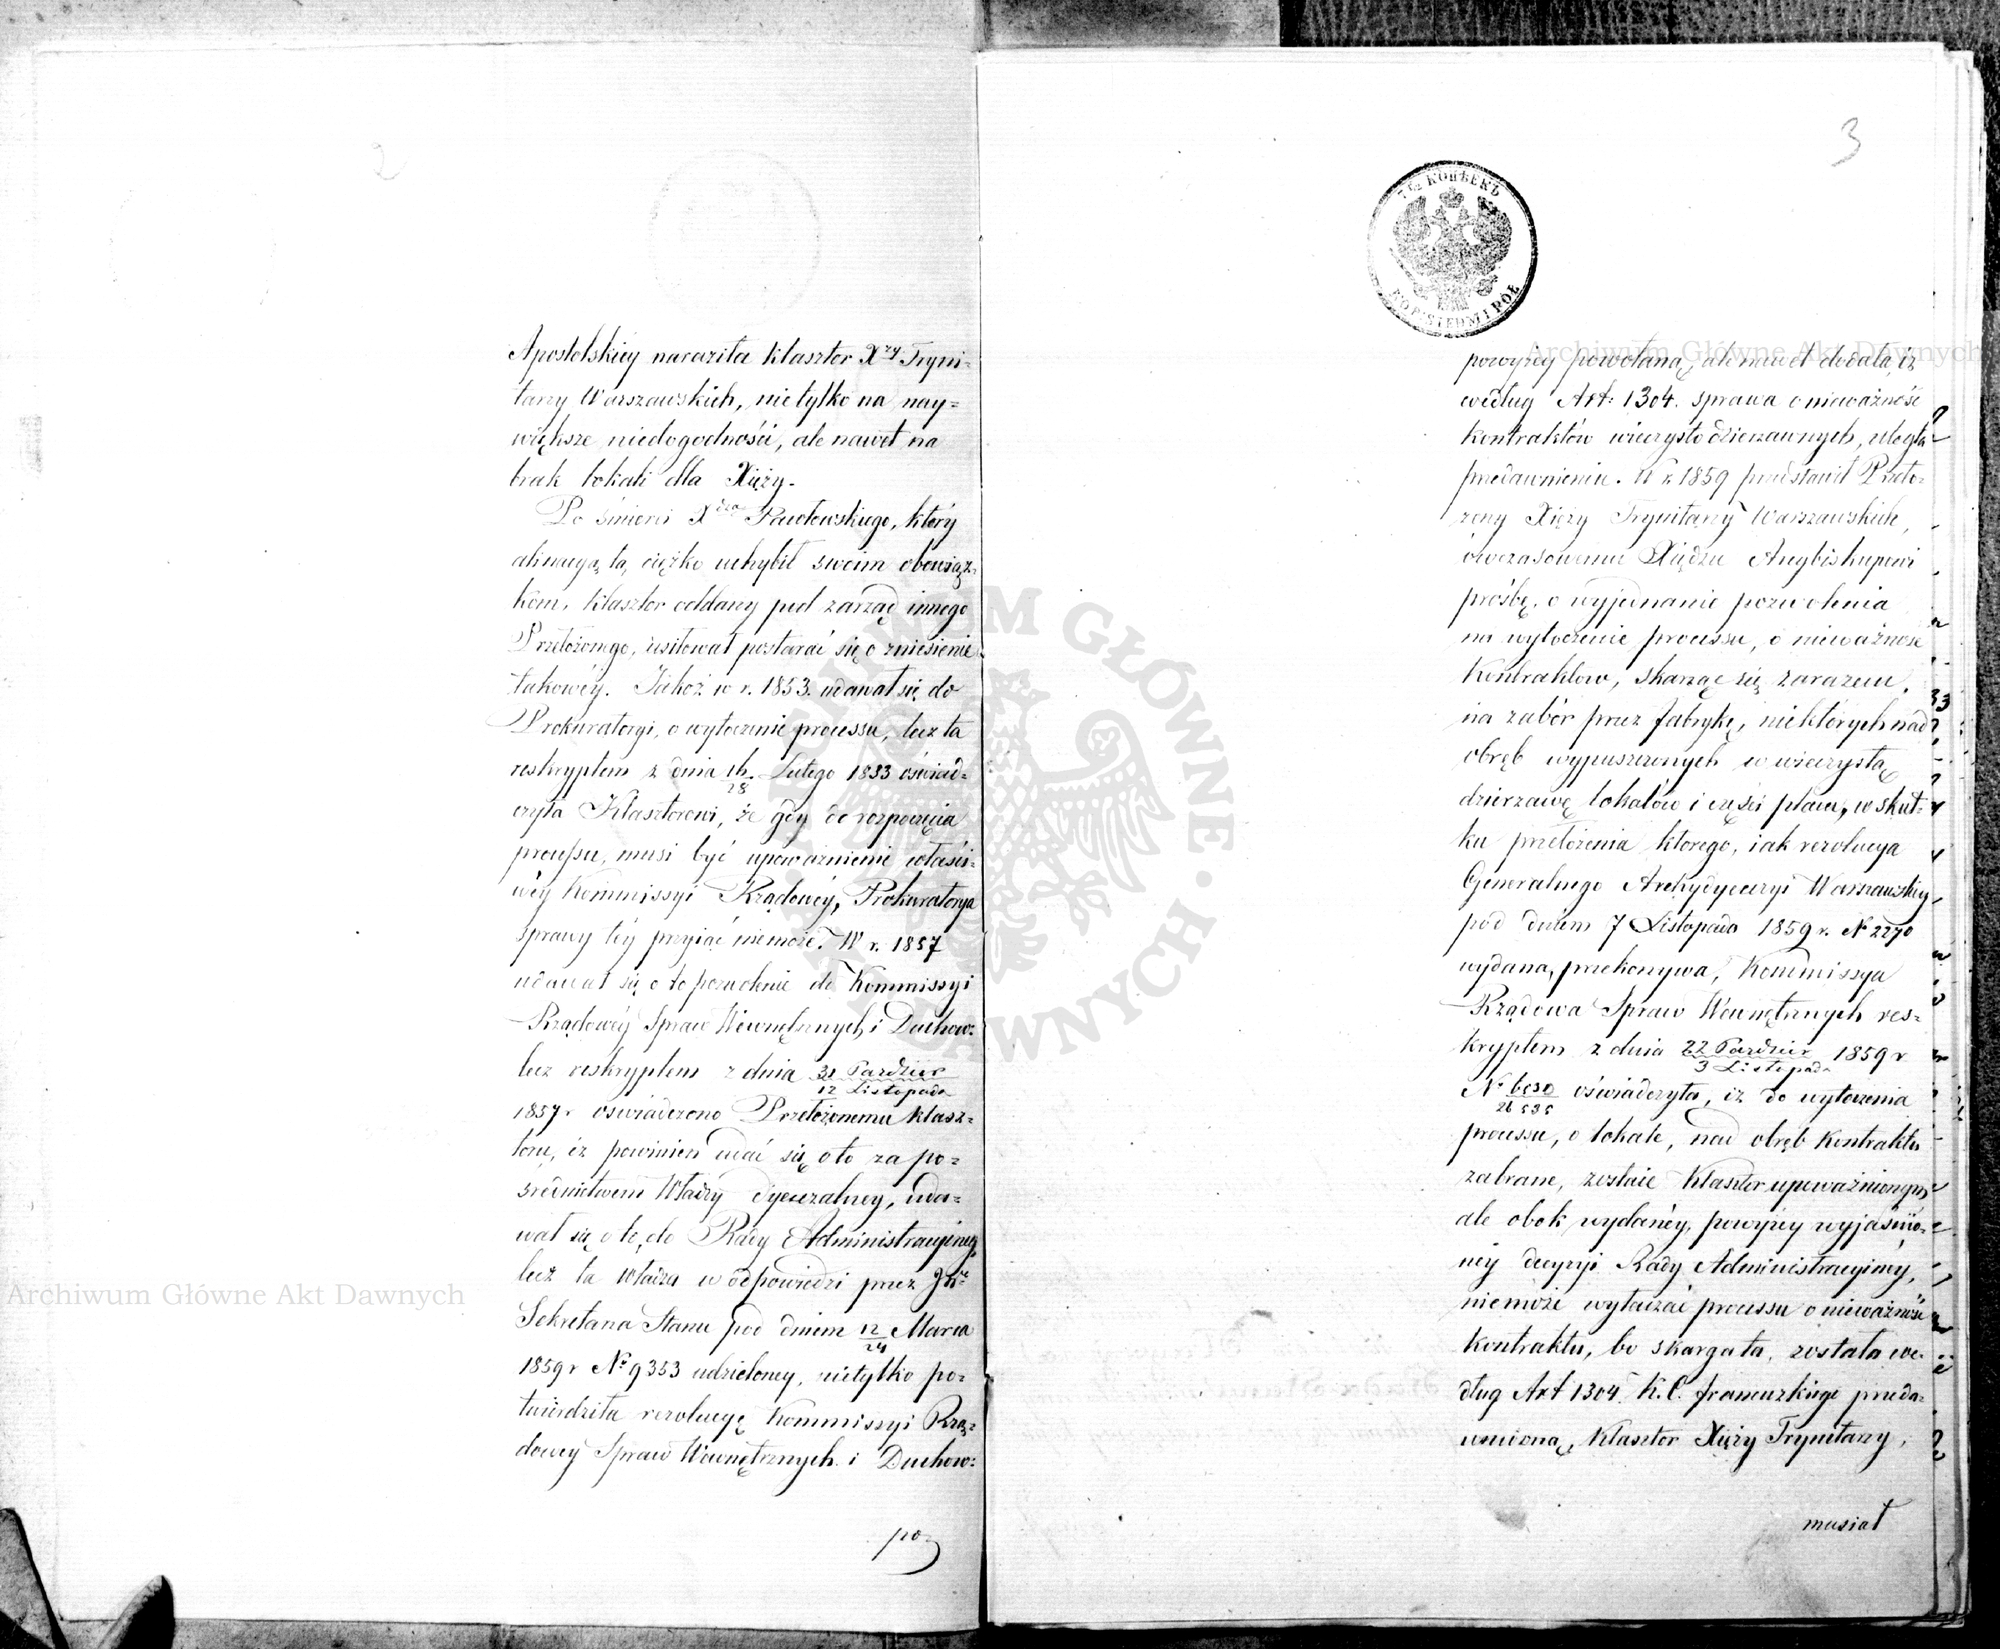 Apostolskiey naraziła klasztor Xży Tryni-
tarzy Warszawskich, nie tylko na nay-
większe niedogodności, ale nawet na
brak lokali dla Xięży.
Po śmierci Xdza Pawłowskiego, który
alienacyą tą, ciężko uchybił swoim obowiąz-
kom, klasztor oddany pod zarząd innego
Przełożonego, usiłował postarać się o zniesienie
takowéy. Jakoż w r. 1853. udawał się do
Prokuratoryi, o wytoczenie processu, lecz ta
reskryptem z dnia 16/28 Lutego 1853 oświad-
czyła Klasztorowi, że gdy do rozpoczęcia
processu, musi być upoważnienie właści-
wéy Kommissyi Rządowéy, Prokuratorya
sprawy téy przyiąć niemoże. W r. 1857
udawał się o to pozwolenie do Kommissyi
Rządowéy Spraw Wewnętrznych i Duchow:
lecz reskryptem z dnia 31 Paździer/12 Listopada
1857 r oświadczono Przełożonemu klasz-
toru, iż powinien udać się o to za po-
średnictwem Władzy Dyecezalney, uda-
wał się o to, do Rady Administracyiney,
lecz ta Władza w odpowiedzi przez JW.
Sekretarza Stanu pod dniem 12/24 Marca
1859 r No 9353 udzieloney, nietylko po-
twierdziła rezolucyę Kommissyi Rzą-
dowey Spraw Wewnętrznych i Duchow:
po-
3
7 1/2 КОПѢЕКЪ
KOP. SIEDM I PÓŁ
powyżey powołaną, ale nawet dodała, iż
według Art: 1304. sprawa o nieważność
kontraktów wieczysto dzierzawnych, uległa
przedawnieniu. W r. 1859 przedstawił Przeło-
żony Xięży Trynitarzy Warszawskich,
ówczasowemu Xiędzu Arcybiskupowi
prośbę, o wyjednanie pozwolenia
na wytoczenie processu, o nieważność
Kontraktow, skarząc się zarazem,
na zabór przez fabrykę, niektórych nad
obręb wypuszczonych w wieczystą
dzierzawę lokalów i części placu, w skut-
ku przełożenia ktorego, iak rezolucya
Generalnego Archydyecezyi Warszawskiey
pod dniem 7 Listopada 1859 r. N 2270
wydana, przekonywa, Kommissya
Rządowa Spraw Wewnętrznych res-
kryptem z dnia 22 Paździer/3 Listopada 1859 r
N 26535 oświadczyła, iż do wytoczenia
processu, o lokale, nad obręb kontraktu
zabrane, zostaie Klasztor upoważnionym,
ale obok wydanéy, powyżey wyjaśnio-
néy decyzyi Rady Administracyinéy,
niemoże wytaczać processu o nieważność
kontraktu, bo skarga ta, została we-
dług Art 1304 K.C. francuzkiego przeda-
wnioną, Klasztor Xięży Trynitarzy,
musiał
Archiwum Główne Akt Dawnych
Archiwum Główne Akt Dawnych
ARCHIWUM GŁÓWNE AKT DAWNYCH